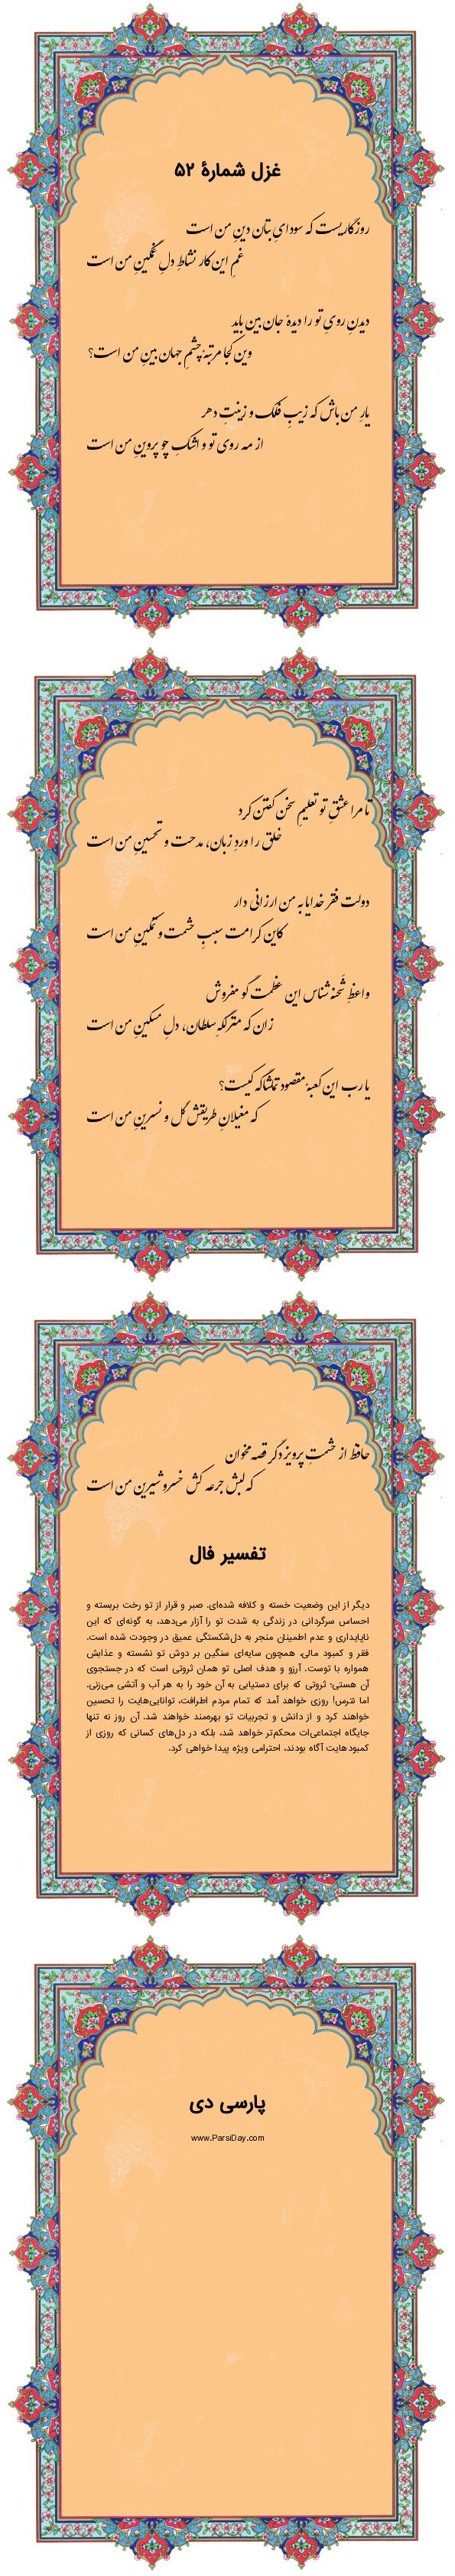 غزل شمارهٔ ۵۲
روزگاریست که سودایِ بتان دینِ من است
غمِ این کار نشاطِ دلِ غمگینِ من است
دیدنِ رویِ تو را دیدهٔ جان بین باید
وین کجا مرتبهٔ چشمِ جهان بینِ من است؟
یارِ من باش که زیبِ فلک و زینتِ دهر
از مه روی تو و اشکِ چو پروینِ من است
تا مرا عشقِ تو تعلیمِ سخن گفتن کرد
خلق را وردِ زبان، مدحت و تحسینِ من است
دولت فقر خدایا به من ارزانی دار
کاین کرامت سببِ حشمت و تمکینِ من است
واعظِ شَحنه شناس این عظمت گو مفروش
زان که منزلگهِ سلطان، دلِ مسکینِ من است
یا رب این کعبهٔ مقصود تماشاگه کیست؟
که مغیلانِ طریقش گل و نسرینِ من است
حافظ از حشمتِ پرویز دگر قصه مخوان
که لبش جرعه کش خسرو شیرینِ من است
تفسیر فال
دیگر از این وضعیت خسته و کلافه شده‌ای. صبر و قرار از تو رخت بربسته و
احساس سرگردانی در زندگی به شدت تو را آزار می‌دهد، به گونه‌ای که این
ناپایداری و عدم اطمینان منجر به دل‌شکستگی عمیق در وجودت شده است.
فقر و کمبود مالی، همچون سایه‌ای سنگین بر دوش تو نشسته و عذابش
همواره با توست. آرزو و هدف اصلی تو همان ثروتی است که در جستجوی
آن هستی؛ ثروتی که برای دستیابی به آن خود را به هر آب و آتشی می‌زنی.
اما نترس! روزی خواهد آمد که تمام مردم اطرافت، توانایی‌هایت را تحسین
خواهند کرد و از دانش و تجربیات تو بهره‌مند خواهند شد. آن روز نه تنها
جایگاه اجتماعی‌ات محکم‌تر خواهد شد، بلکه در دل‌های کسانی که روزی از
کمبودهایت آگاه بودند، احترامی ویژه پیدا خواهی کرد.
پارسی دی
www.ParsiDay.com